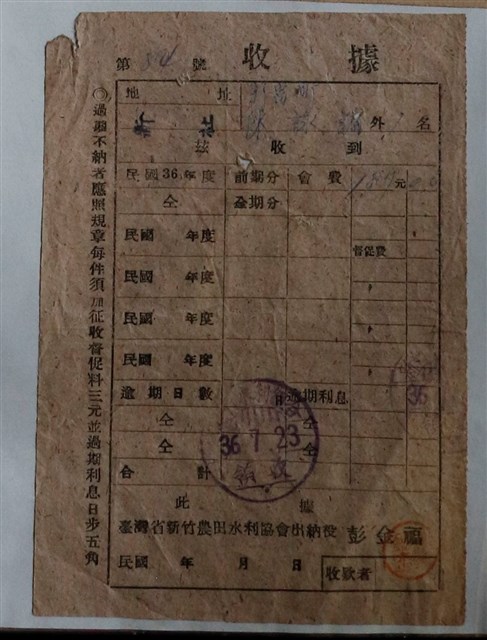 收據
第 號
地址
外 名
茲收到
民國36年度 前期分 會費 元
仝 全期分
民國 年度 督促費
民國 年度 〃
民國 年度 〃
民國 年度 〃
逾期日數 日 逾期利息
仝 仝
仝 仝
合計
36 7 23
36
此據
臺灣省新竹農田水利協會出納役 彭金福
民國 年 月 日 收欵者
◎過期不納者應照規章每件須加征收督促料三元並過期利息日步五角